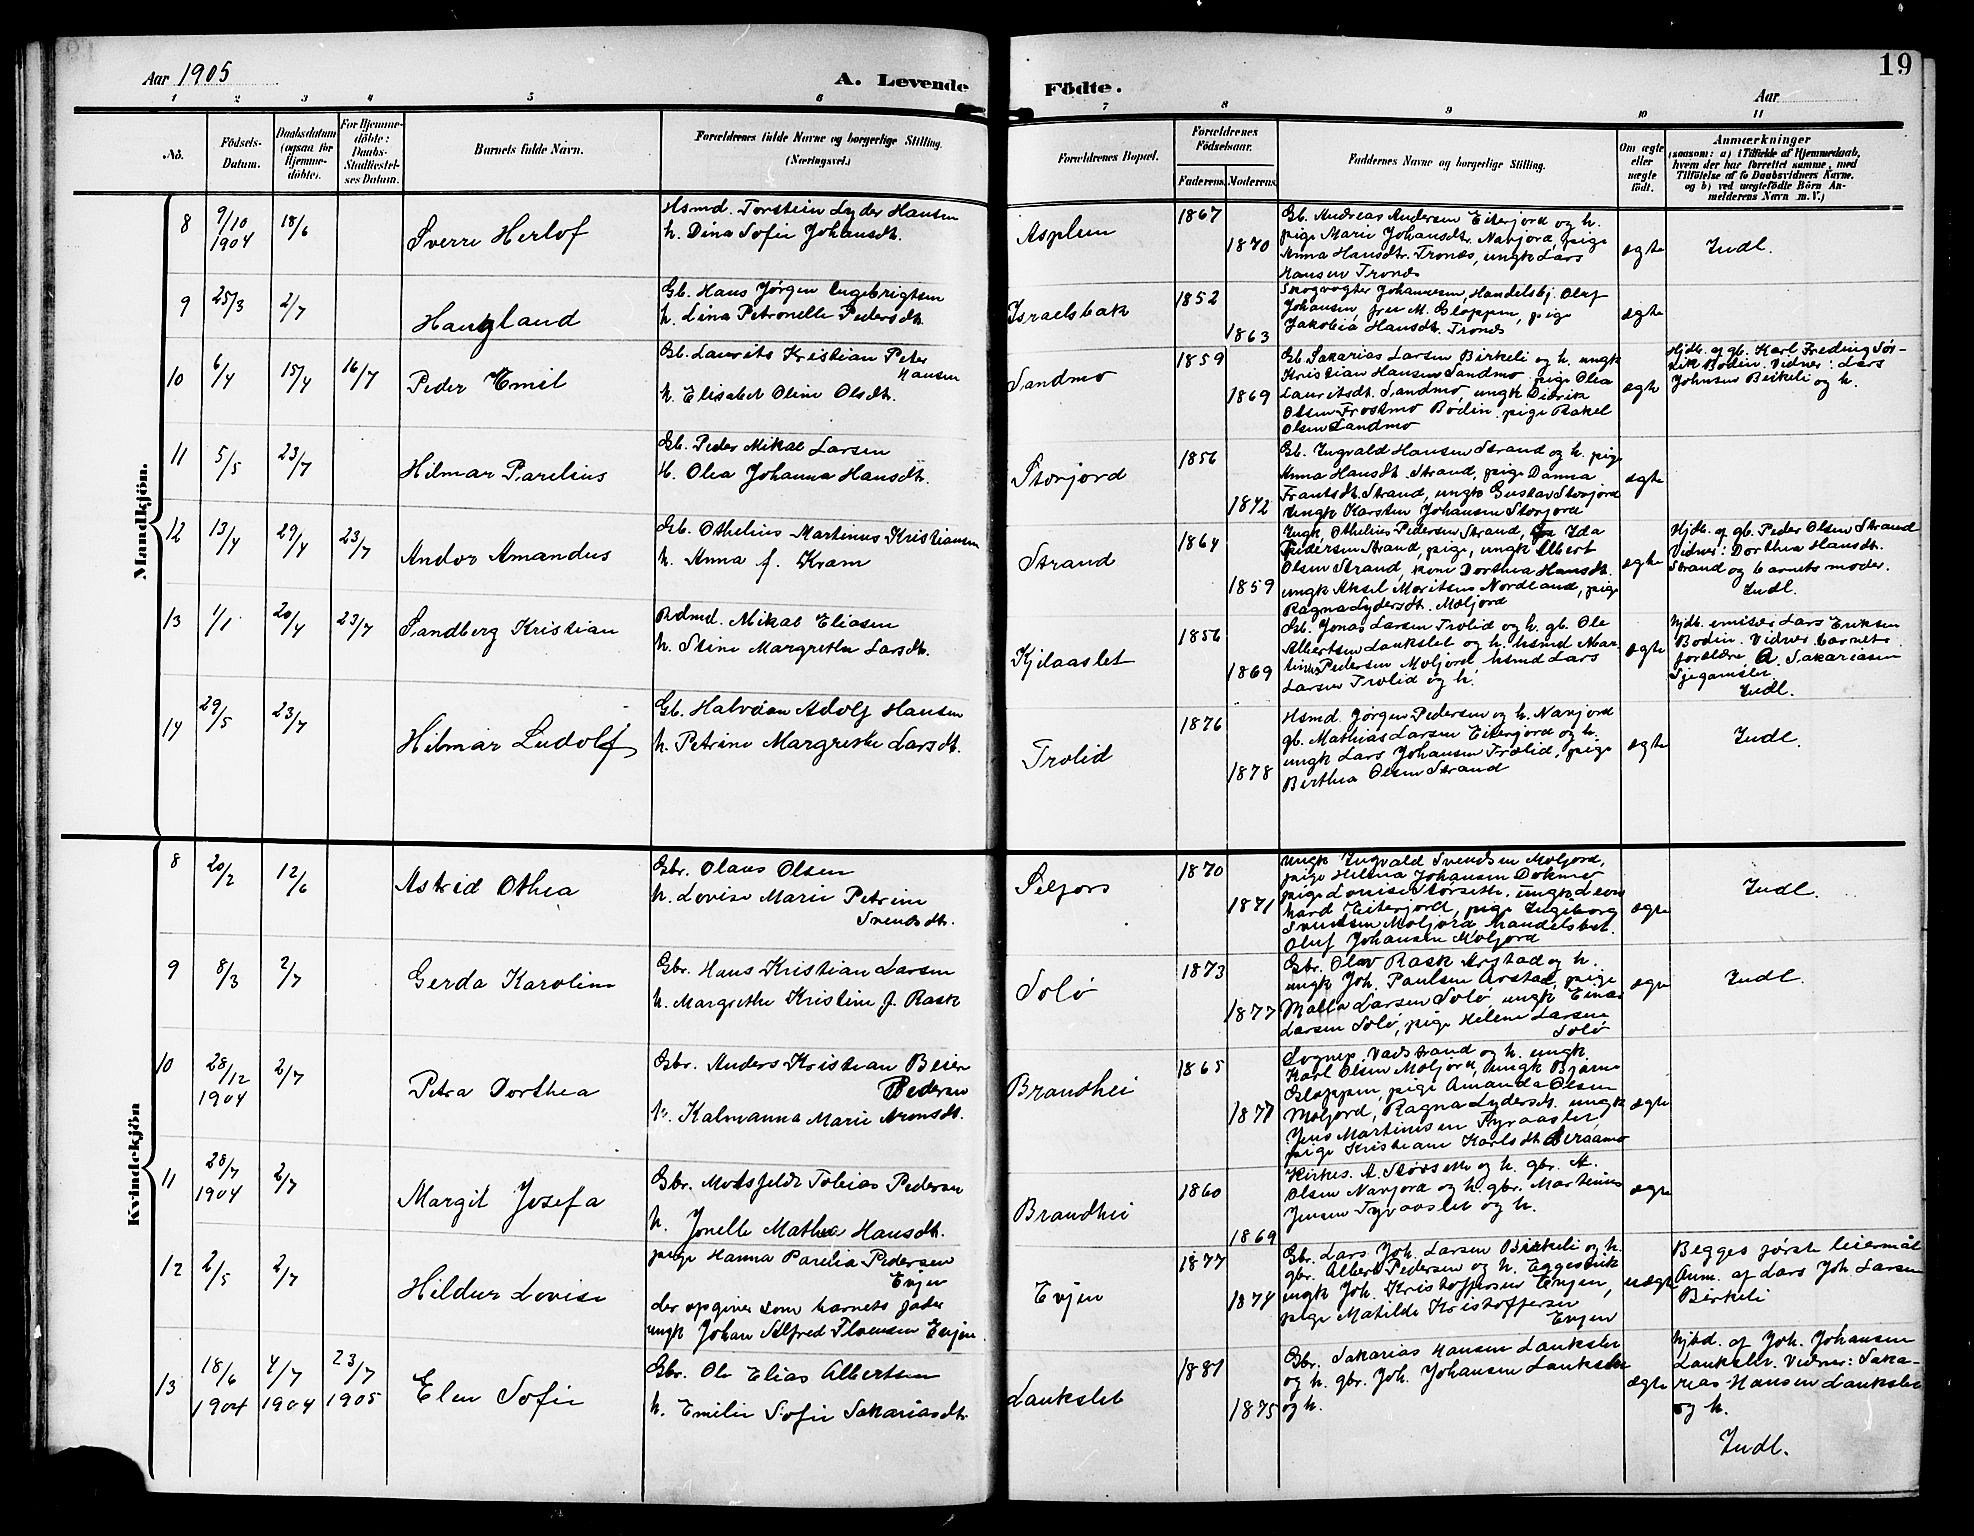 19
Aar 1905
A. Levende
Födte.
Aar
1 2 3 4 5 6 7 8 9 10 11
No.
Födsels-
Datum.
Daabsdatum
(ogsaa for
Hjemme-
döbte).
For Hjemme-
döbte:
Daabs-
Stadfæstel-
ses Datum.
Barnets fulde Navn.
Forældrenes fulde Navne og borgerlige Stilling.
(Næringsvei.)
Forældrenes Bopæl.
Forældrenes
Födselsaar.
Faderens. Moderens.
Faddernes Navne og borgerlige Stilling.
Om ægte
eller
uægte
födt.
Anmærkninger
(saasom: a) i Tilfælde af Hjemmedaab,
hvem der har forrettet samme, med
Tilföielse af to Daabsvidners Navne.
og b) ved uægtefödte Börn An-
melderens Navn m. V.)
Mandkjön.
8
9/10
1904
18/6
Sverre Herlof
Hsmd. Torstein Lyder Hansen
h. Dina Sofie Johansdt.
Asplun
1867
1870
Gb. Andreas Andersen Eiterjord og h.
pige Marie Johansdt. Navjord, pige
Anna Hansdt. Tronæs, ungk Lars
Hansen Tronæs
ægte
Indl.
9
25/3
2/7
Haugland
Gb. Hans Jørgen Engebrigtsen
h. Lina Petronelle Pedersdt.
Israelsbak
1852
1863
Skogvogter Johannesen, Handelsbj. Oluf
Johansen, fru M. Gloppen, pige
Jakobia Hansdt. Tronæs
ægte
10
6/4
15/4
16/7
Peder Emil
Gb. Laurits Kristian Peter
Hansen
h. Elisabet Oline Olsdt.
Sandmo
1859
1869
Gb. Sakarias Larsen Birkeli og h. ungk
Kristian Hansen Sandmo, pige Olea
Lauritsdt. Sandmo, ungk Didrik
Olsen Frostmo Bodin, pige Rakel
Olsen Sandmo
ægte
Hjdb. af gb. Karl Freding Sør-
vik Bodin. Vidner: Lars
Johnsen Birkeli og h.
11
5/5
23/7
Hilmar Parelius
Gb. Peder Mikal Larsen
H. Olea Johanna Hansdt.
Storjord
1856
1872
Gb. Ingvald Hansen Strand og h. pige
Anna Hansdt. Strand, pige Danna
Frantsdt. Strand, ungk Gustav Storjord
ungk Karsten Johansen Storjord
ægte
12
13/4
29/4
23/7
Andor Amandus
Gb. Othelius Martinus Kristiansen
h. Anna f. Kram
Strand
1864
1859
Ungk. Othelius Pedersen Strand, Ida
Pedersen Strand, pige, ungk Albert
Olsen Strand kone Dorthea Hansdt.
ungk Aksel Moritsen Nordland, pige
Ragna Lydersdt. Moljord
ægte
Hjdb. af gb. Peder Olsen Strand
Vidner: Dorthea Hansdt.
Strand og barnets moder.
Indl.
13
1/1
20/4
23/7
Sandberg Kristian
Rdmd. Mikal Eliasen
h. Stine Margrethe Larsdt.
Kjilaaslet
1856
1869
Gb. Jonas Larsen Trolid og h. gb. Ole
Albertsen Laukslet og h. hsmd Mar-
tinus Pedersen Moljord hsmd Lars
Larsen Trolid og h.
ægte
Hjdb. emisær Lars Eriksen
Bodin. Vidner barnets
forældre, A. Sakariasen
Indl.
14
29/5
23/7
Hilmar Ludolf
Gb. Halvdan Adolf Hansen
h. Petrine Margrethe Larsdt.
Trolid
1876
1878
Hsmd. Jørgen Pedersen og h. Navjord
gb. Mathias Larsen Eiterjord og h.
ungk Lars Johansen Trolid, pige
Berthea Olsen Strand
ægte
Indl.
Kvindekjön
8
20/2
12/6
Astrid Othea
Gbr. Olaus Olsen
h. Lovise Marie Petrine
Svendsdt.
Selfors
1870
1871
ungk Ingvald Svendsen Moljord,
pige Helena Johansen Dokmo
pige Louise Storseth. ungk Leon
hard Eiterjord, pige Ingeborg
Svendsen Moljord handelsbst.
Oluf Johansen Moljord
ægte
Indl.
9
8/3
2/7
Gerda Karoline
Gbr. Hans Kristian Larsen
h. Margrethe Kristine f. Rask
Solö
1873
1877
Gbr. Olav Rask Arstad og h.
ungk Joh. Paulsen Arstad, pige
Malla Larsen Solö, ungk Einar
Larsen Solö, pige Helene Larsen
Solö
ægte
Indl.
10
28/12
1904
2/7
Petra Dorthea
Gbr. Anders Kristian Beier
Pedersen
h. Kalmanna Marie Aronsdt.
Brandhei
1865
1871
Sognep. Vadstrand og h. ungk.
Karl Olsen Moljord, ungk Bjarne
Gloppen, pige Amanda Olsen
Moljord, Ragna Lydersdt. ungk
Jens Martinisen Tyvaaslet
pige Kristiane Karlsdt.
ægte
11
28/7
1904
2/7
Margit Josefa
Gbr. Motsfeldt Tobias Pedersen
h. Jonelle Mathea Hansdt.
Brandhei
1860
1869
Kirkes. A. Störseth og h. gbr. A.
Olsen Navjord og h. gbr. Martinus
Jensen Tyvaaslet og h.
ægte
12
2/5
2/7
Hildur Lovise
pige Hanna Parelia Pedersen
Evjen
der opgiver som barnets fader
ungk Johan Alfred Floensen Evjen.
Evjen
1877
1874
Gbr. Lars Joh. Larsen Birkeli og h.
gbr. Albert Pedersen og h. Eggesvik
ungk Joh. Kristoffersen Evjen,
pige Matilde Kristoffersen
Evjen
uægte
Begges første leiermål
Anm. af Lars Joh. Larsen
Birkeli
13
18/6
1904
4/7
1904
23/7
1905
Elen Sofie
Gbr. Ole Elias Albertsen
h. Emilie Sofie Sakariasdt.
Laukslet
1881
1875
Gbr. Sakarias Hansen Laukslet
og h. gbr. Joh. Johansen Laukslet
og h.
ægte
hjbd. af Joh. Johansen
Laukslet. Vidner: Saka-
rias Hansen Laukslet
og h.
Indl.